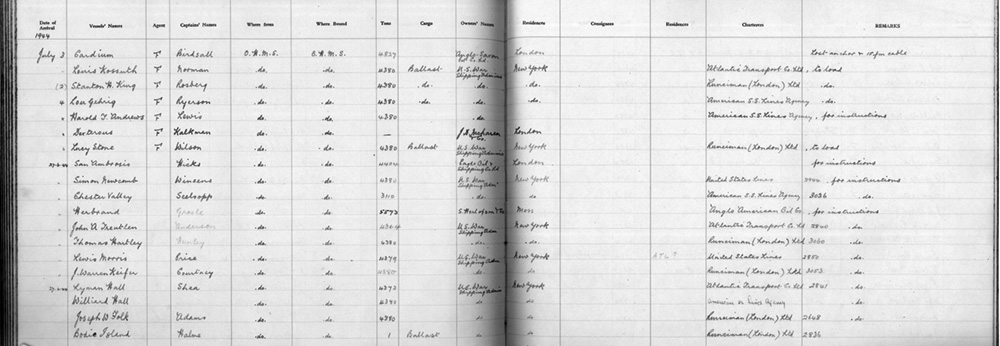 Date of Arrival 1944 Vessels' Names Agent Captains' Names Where from Where Bound Tons Cargo Owners' Names Residence Consignees Residence Charterers REMARKS
July 3 Cardium F Birdsall O.H.M.S. O.H.M.S. 4827 Anglo Saxon London Lost anchor & cable
" Lewis Kossuth F Norman do. do. 4380 Ballast U.S. War Shipping Admin New York Atlantic Transport Co Ltd, to load
(2) Stanton H. King F Rosberg do. do. 4380 do. do. do. Runciman (London) Ltd do.
4 Lou Gehrig F Ryerson do. do. 4380 do. do. do. American S.S. Lines Agency do.
" Harold T. Andrews F Lewis do. do. 4380 do. do. American S.S. Lines Agency, for instructions
" Dexterous F Kalkman do. do. — London
" Lucy Stone F Wilson do. do. 4380 Ballast U.S. War Shipping Admin New York Runciman (London) Ltd do.
San Ambrosio Hicks do. do. Eagle Oil & Shipping Co Ltd London for instructions
" Simon Newcomb do. do. 4380 U.S. War Shipping Adm New York United States Lines for instructions
" Chester Valley do. do. 3110 do. do. American S.S. Lines Agency 3036 do.
" Herbrand do. do. Moss Anglo American Oil Co, for instructions
" John A. Treutlen Anderson do. do. U.S. War Shipping Adm New York Atlantic Transport Co Ltd 2840 do.
" Thomas Hartley do. do. 4380 do. do. Runciman (London) Ltd 3060 do.
" Lewis Morris Price do. do. 4379 U.S. War Shipping Adm New York United States Lines 2850 do.
" J. Warren Keifer Courtney do. do. 4380 do do Runciman (London) Ltd 3053 do.
Lyman Hall Shea do. do. 4373 U.S. War Shipping Admin New York Atlantic Transport Co Ltd 2841 do.
Williard Hall do. do do do.
Joseph W. Folk Adams do. do. 4380 do do Runciman (London) Ltd 2648 do.
Bodie Island Halme do. do. 1 Ballast do do Runciman (London) Ltd 2836 do.